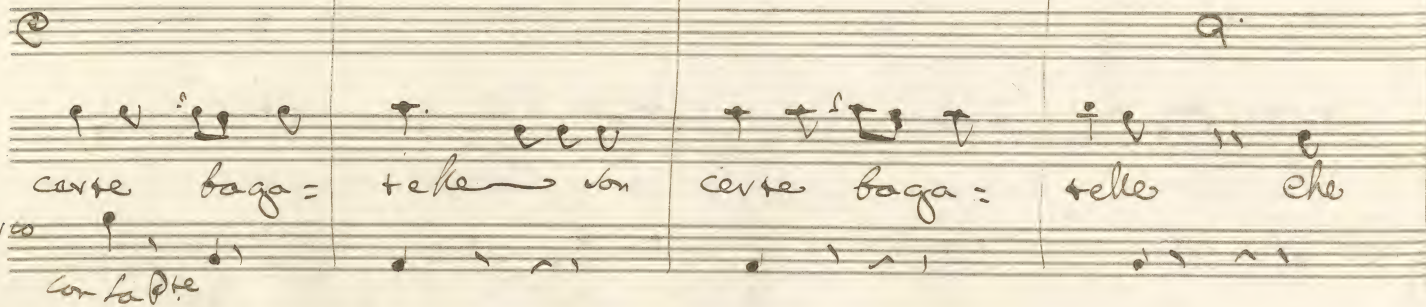 certe baga= telle son certe baga= telle che
con la p.te